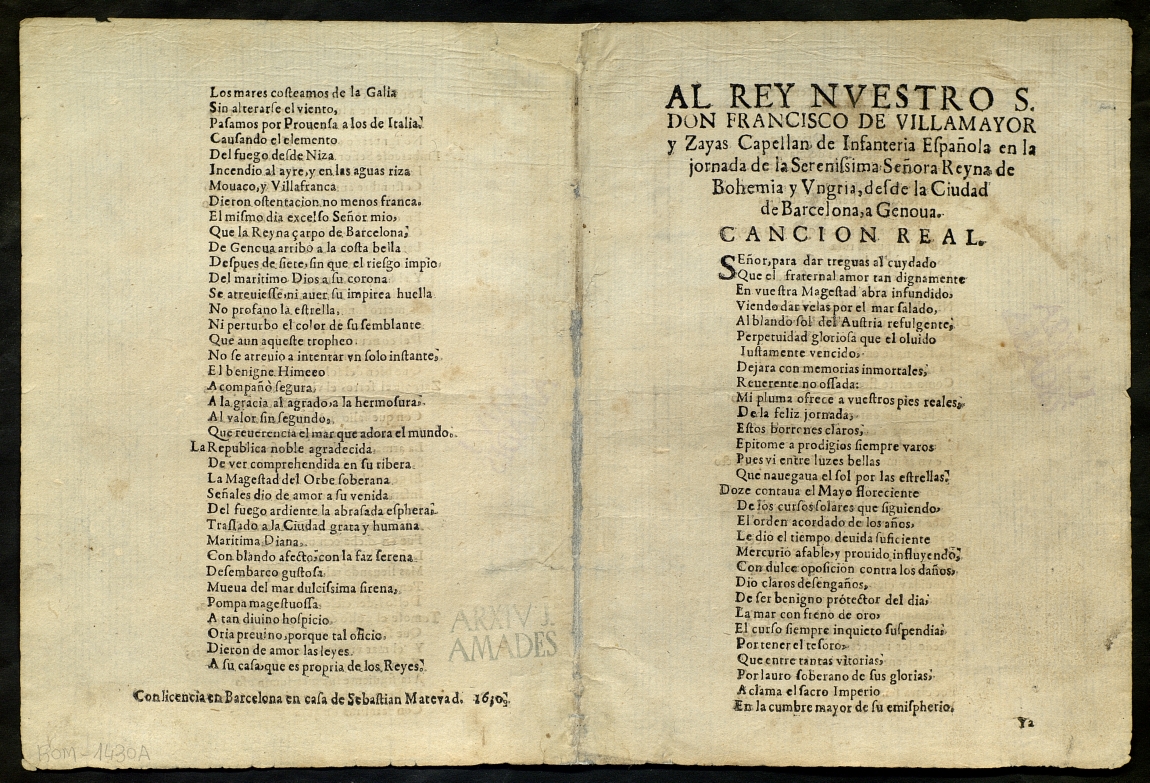 Los mares costeamos de la Galia
Sin alterarse el viento,
Pasamos por Prouensa a los de Italia;
Causando el elemento
Del fuego desde Niza
Incendio al ayre, y en las aguas riza
Mouaco, y Villafranca
Dieron ostentacion no menos franca.
El mismo dia excelso Señor mio,
Que la Reyna çarpo de Barcelona;
De Genoua arribò a la costa bella
Despues de siete, sin que el riesgo impio
Del maritimo Dios a su corona
Se atreuiesse, ni auer su impirea huella
No profano la estrella,
Ni perturbo el color de su semblante
Que aun aqueste tropheo
No se atreuio a intentar vn solo instante;
El benigne Himeeo
Acompañò segura,
A la gracia, al agrado, a la hermosura;
Al valor sin segundo,
Que reuerencia el mar que adora el mundo.
La Republica noble agradecida
De ver comprehendida en su ribera
La Magestad del Orbe soberana
Señales dio de amor a su venida
Del fuego ardiente la abrasada esphera;
Traslado a la Ciudad grata y humana
Maritima Diana,
Con blando afecto, con la faz serena
Desembarco gustosa
Mueua del mar dulcissima sirena,
Pompa magestuossa
A tan diuino hospicio
Oria preuino, porque tal oficio,
Dieron de amor las leyes
A su casa, que es propria de los Reyes.
Con licencia en Barcelona en casa de Sebastian Matevad. 1630.
ARXIV J.
AMADES
ROM-1430A
AL REY NVESTRO S.
DON FRANCISCO DE VILLAMAYOR
y Zayas Capellan de Infanteria Española en la
jornada de la Serenissima Señora Reyna de
Bohemia y Vngria, desde la Ciudad
de Barcelona, a Genoua.
CANCION REAL.
SEñor, para dar treguas al cuydado
Que el fraternal amor tan dignamente
En vuestra Magestad abra infundido,
Viendo dar velas por el mar salado,
Al blando sol del Austria refulgente;
Perpetuidad gloriosa que el oluido
Iustamente vencido,
Dejara con memorias inmortales,
Reuerente no ossada:
Mi pluma ofrece a vuestros pies reales,
De la feliz jornada,
Estos borrones claros,
Epitome a prodigios siempre varos
Pues vi entre luzes bellas
Que nauegaua el sol por las estrellas.
Doze contaua el Mayo floreciente
De los cursos solares que siguiendo,
El orden acordado de los años,
Le dio el tiempo deuida suficiente
Mercurio afable, y prouido influyendo,
Con dulce oposicion contra los daños,
Dio claros desengaños,
De ser benigno protector del dia,
La mar con freno de oro,
El curso siempre inquieto suspendia,
Por tener el tesoro,
Que entre tantas vitorias,
Por lauro soberano de sus glorias,
Aclama el sacro Imperio
En la cumbre mayor de su emispherio.
Ya